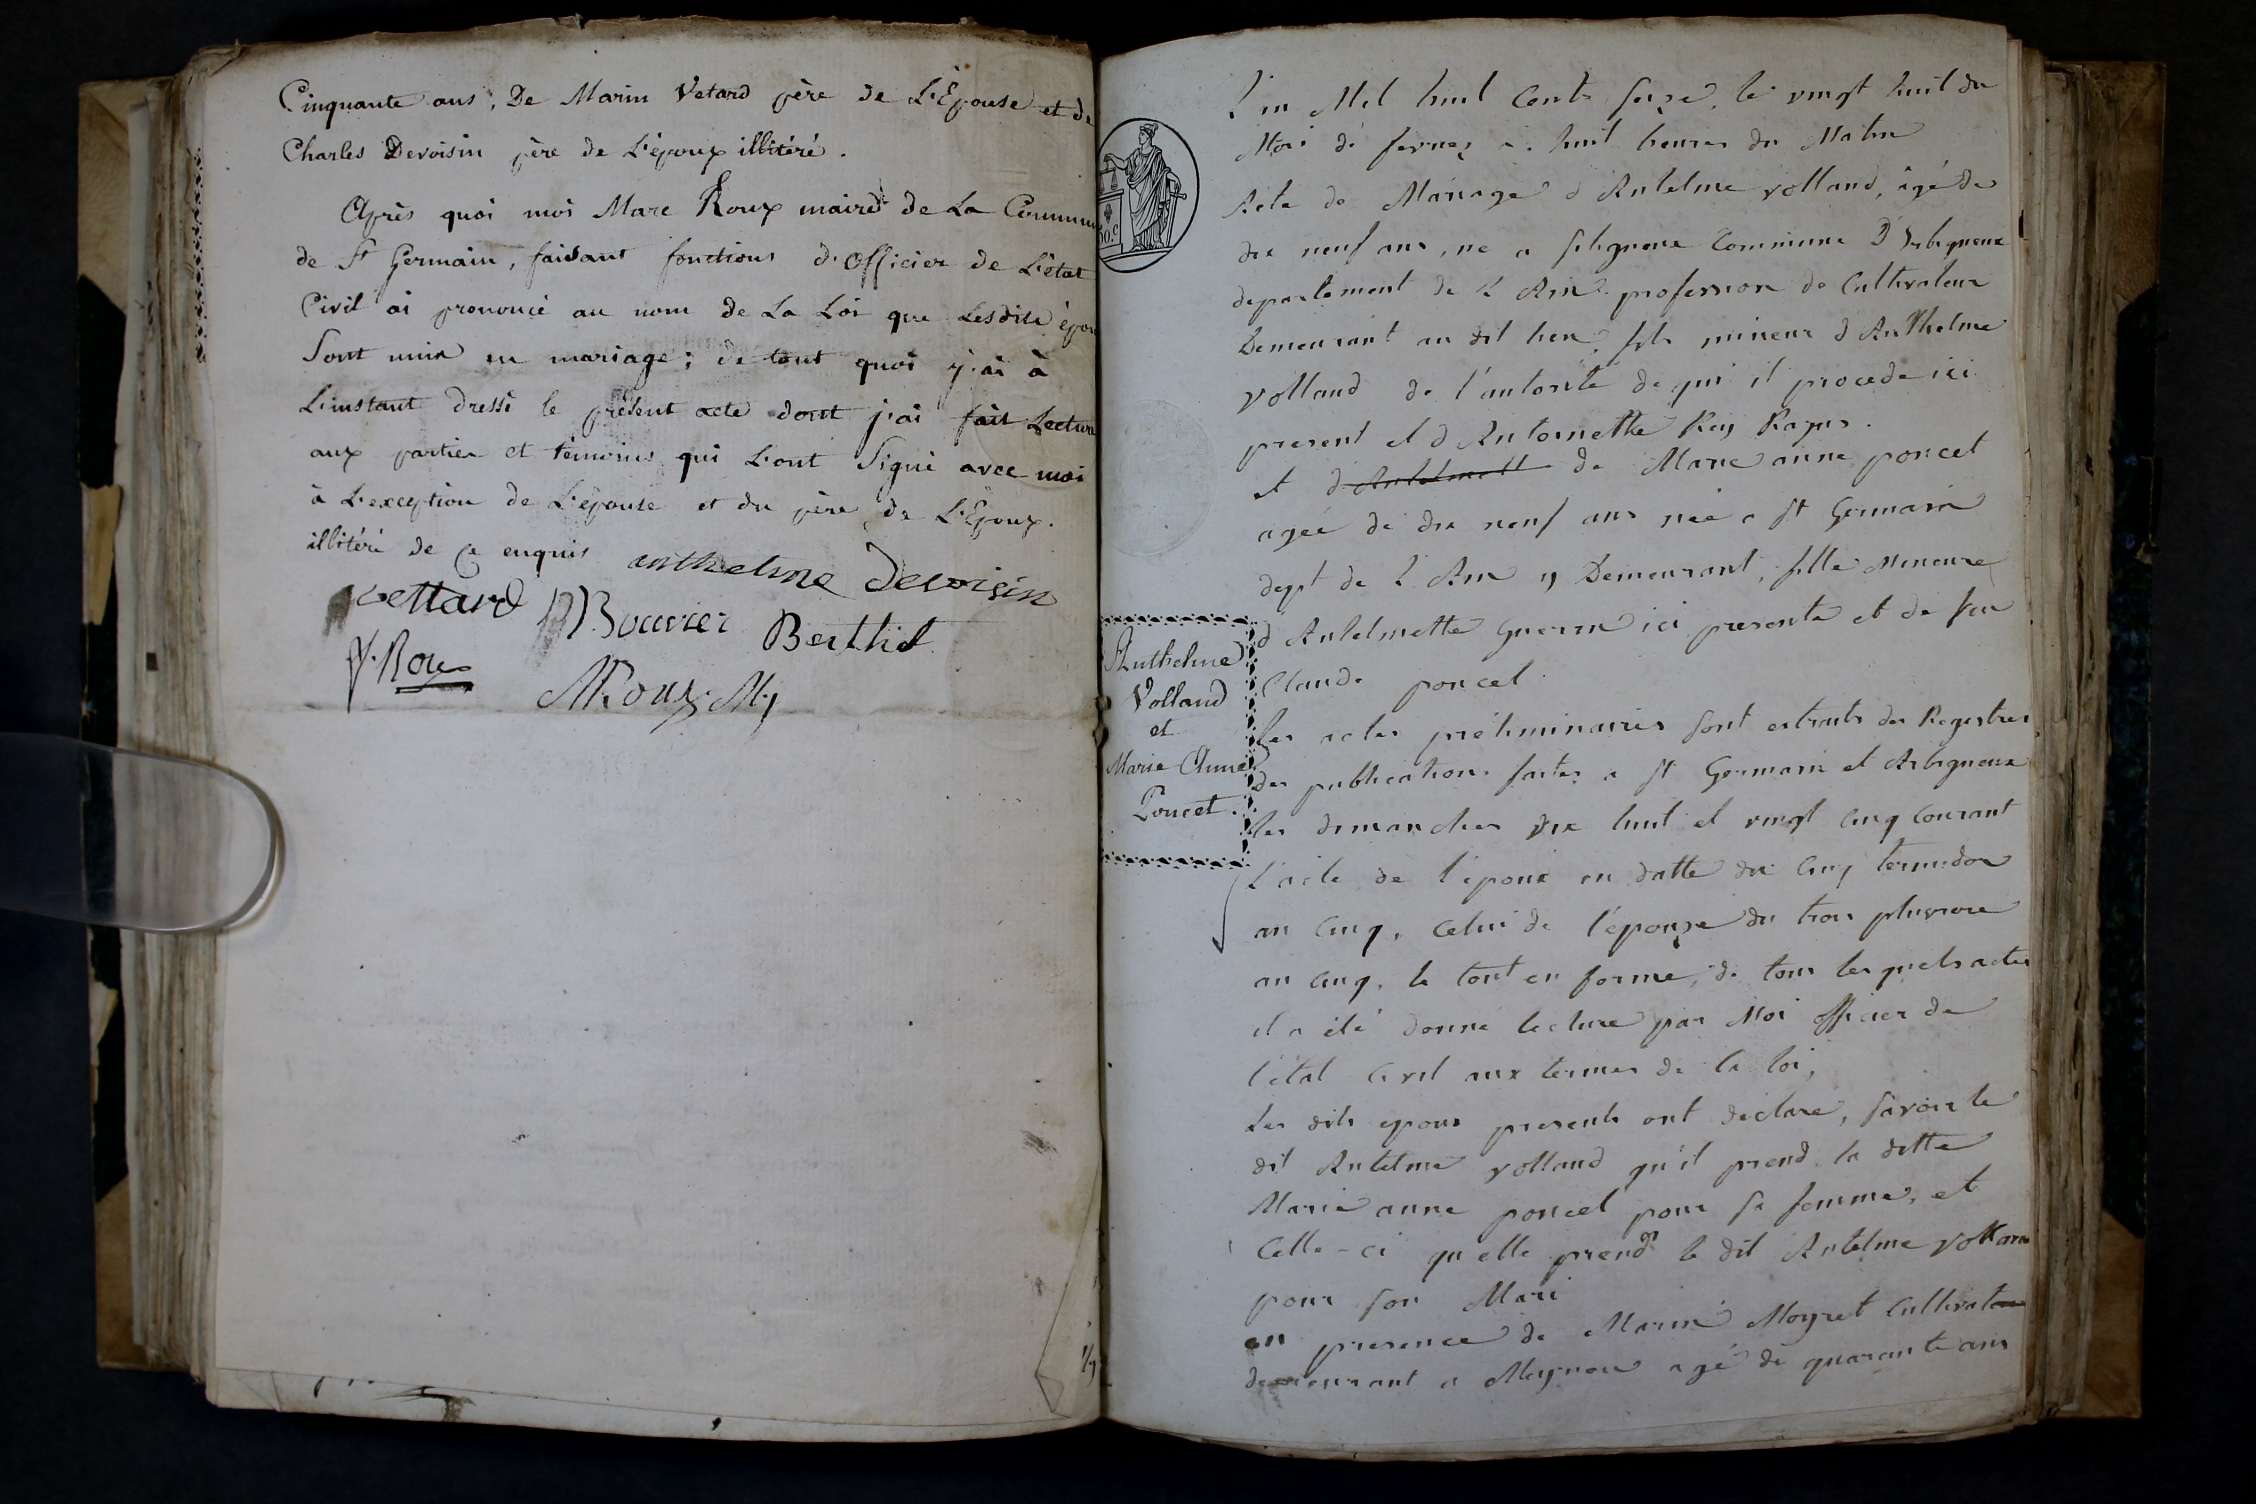 Cinquante ans, De Marin Vetard père de L'Epouse et de
Charles Devoisin père de L'époux illitéré.
Après quoi moi Marc Roux maire de La Commune
de St Germain, faisant fonctions d'Officier de L'état
Civil ai prononcé au nom de La Loi que Lesdits épou
Sont unis en mariage; de tout quoi j'ai à
L'instant dressé le présent acte dont j'ai fait Lecture
aux parties et témoins qui L'ont Signé avec moi
à L'exception de L'épouse et du père de L'Epoux.
illitéré de ce enquis anthelme devoisin
vettard Bouvier Berthet
Roux
MRoux My
60.c
L'an Mil huit Cents seize, le vingt huit du
Mois de fevrier a huit heures du Matin
Acte de Mariage d'Antelme volland, agé de
dix neuf ans, né a Commune D'Arbigneux
departement de l'Ain profession de Cultivateur
Demeurant au dit lieu, fils mineur d'Anthelme
volland de l'autorité de qui il procede ici
present et d'Antoinette Rey
et d'Antelmette de Marie anne poncet
agée de dix neuf ans née a St Germain
dept de l'Ain y Demeurant, fille Mineure
d'Antelmette Guerin ici presente et de feu
Claude poncet.
Les actes préliminaires sont extraits des Registres
des publications faites a St Germain et Arbigneux
les dimanches dix huit et vingt cinq Courant
L'acte de l'époux en datte du Cinq termidor
an Cinq, Celui de l'épouse du trois pluviose
an Cinq, le tout en forme, de tous les quels actes
il a été donné lecture par Moi officier de
l'état Civil aux termes de la loi,
Les dits epoux presents ont déclaré, savoir le
dit Antelme volland qu'il prend la ditte
Marie anne poncet pour sa femme, et
Celle-ci qu'elle prend le dit Antelme volland
pour son Mari
en presence de Marin Moyret Cultivateur
demeurant a agé de quarante ans
Anthelme
Volland
et
Marie Anne
Poncet.